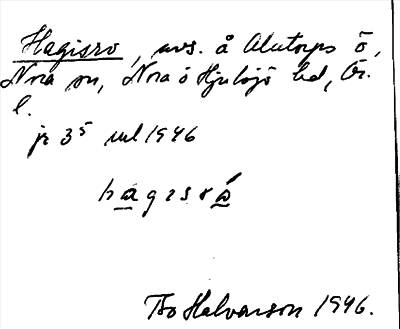 Hagisro, avs. å Alntorps ö,
Nora sn, Nora o Hjulsjö hd, Ör.
l.
jr 35 uul 1946
hagısrá
Bo Halvarson 1946.